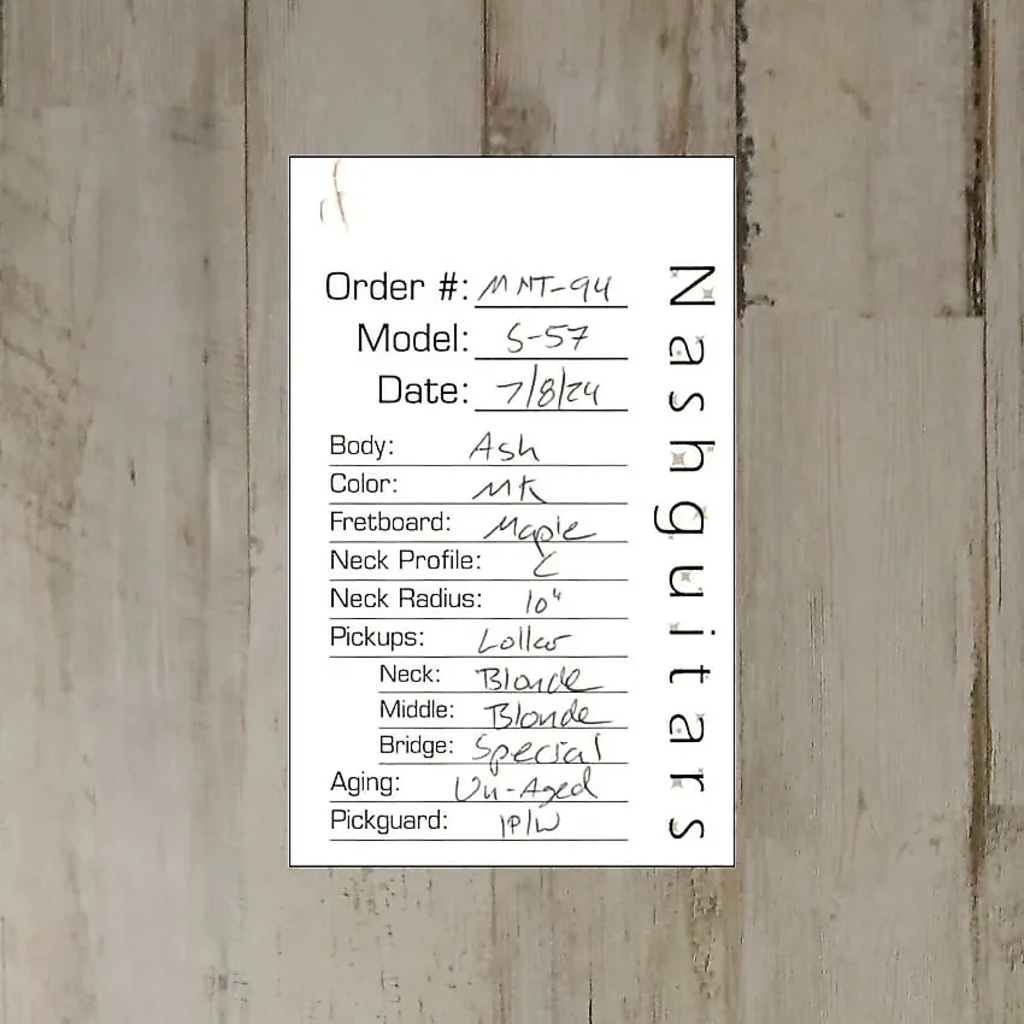 Order #: MNT-94
Model: S-57
Date: 7/8/24
Body: Ash
Color: MK
Fretboard: Maple
Neck Profile: C
Neck Radius: 10"
Pickups: Lollar
Neck: Blonde
Middle: Blonde
Bridge: Special
Aging: Un-Aged
Pickguard: 1P/W
Nashguitars